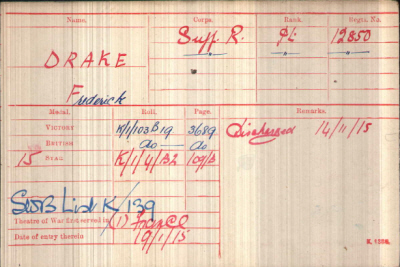 Name. Corps. Rank. Regtl. No.
DRAKE Suff. R. Pt. 12850
Frederick " "
Medal. Roll. Page. Remarks.
VICTORY K/1/103B19 3689 Discharged 14/11/15
BRITISH do do
15 STAR K/1/4/B2 109/B
SWB List K/139
Theatre of War first served in (1) France
Date of entry therein 19/1/15
K. 1380.